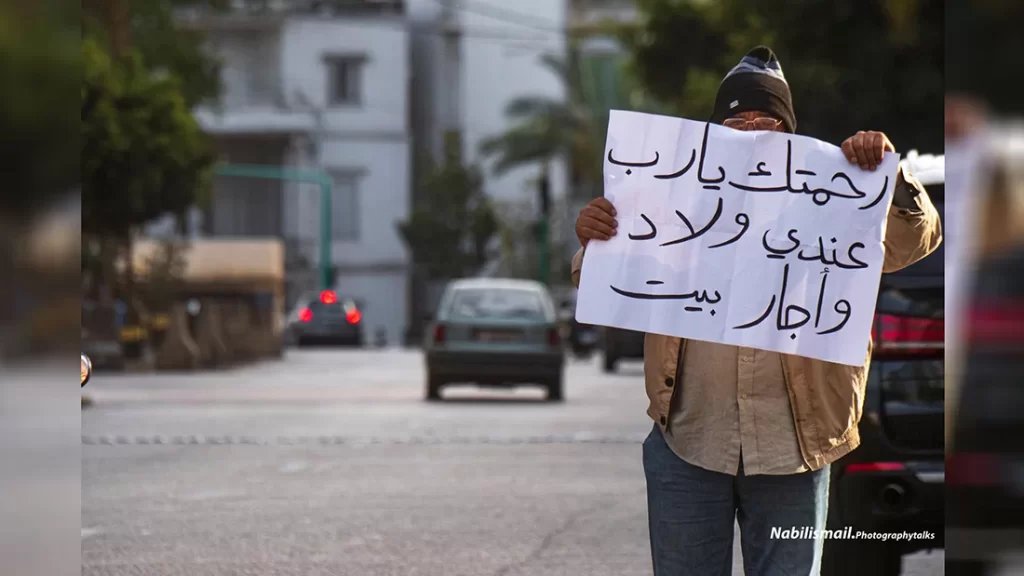 رحمتك يارب
عندي ولاد
وأجار بيت
Nabilismail.Photographytalks